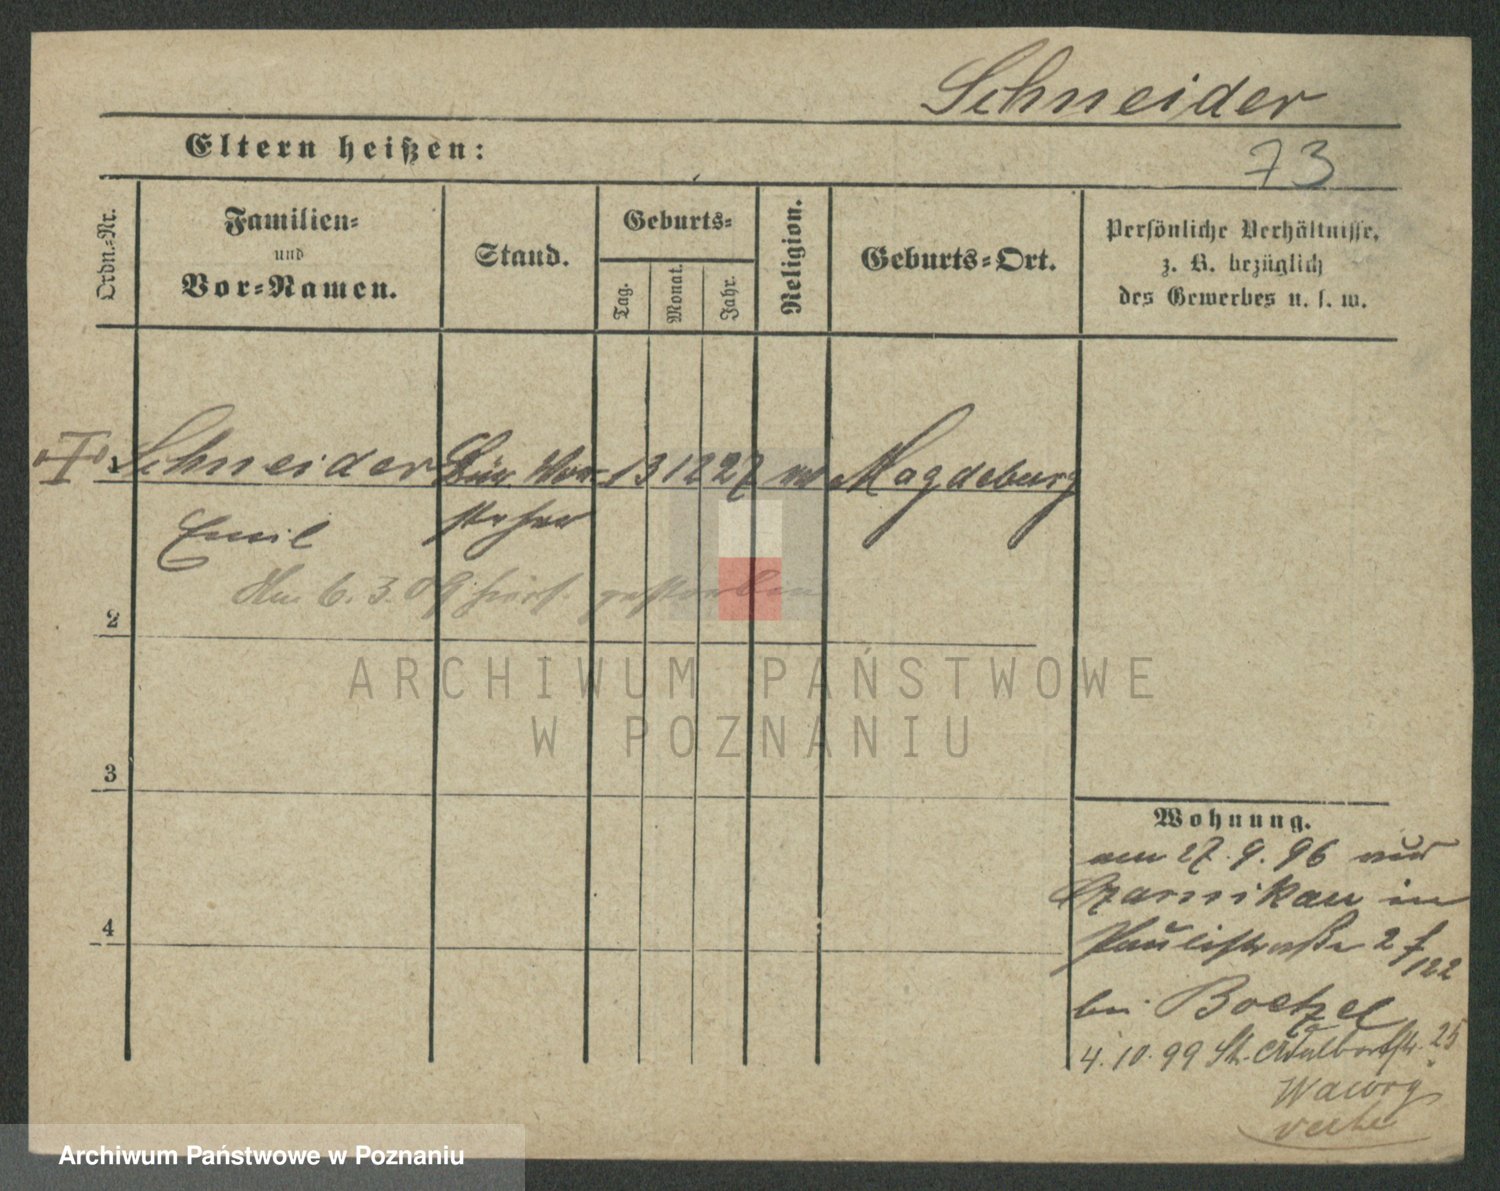 Schneider
Eltern heißen:
73
Ordn.-Nr.
Familien-
und
Vor-Namen.
Stand.
Geburts-
Tag.
Monat.
Jahr.
Religion.
Geburts-Ort.
Persönliche Verhältnisse,
z. B. bezüglich
des Gewerbes u. s. w.
Schneider
Vor-
13 12 27
Magdeburg
Emil
steher
6. 3. 09 hier gestorben
2
3
4
Wohnung.
am 27. 9. 96 aus
Czarnikau in
Paulistraße 2
122
bei Boetzel
4. 10. 99 St. Adalbertstr. 25
ARCHIWUM PAŃSTWOWE
W POZNANIU
Archiwum Państwowe w Poznaniu